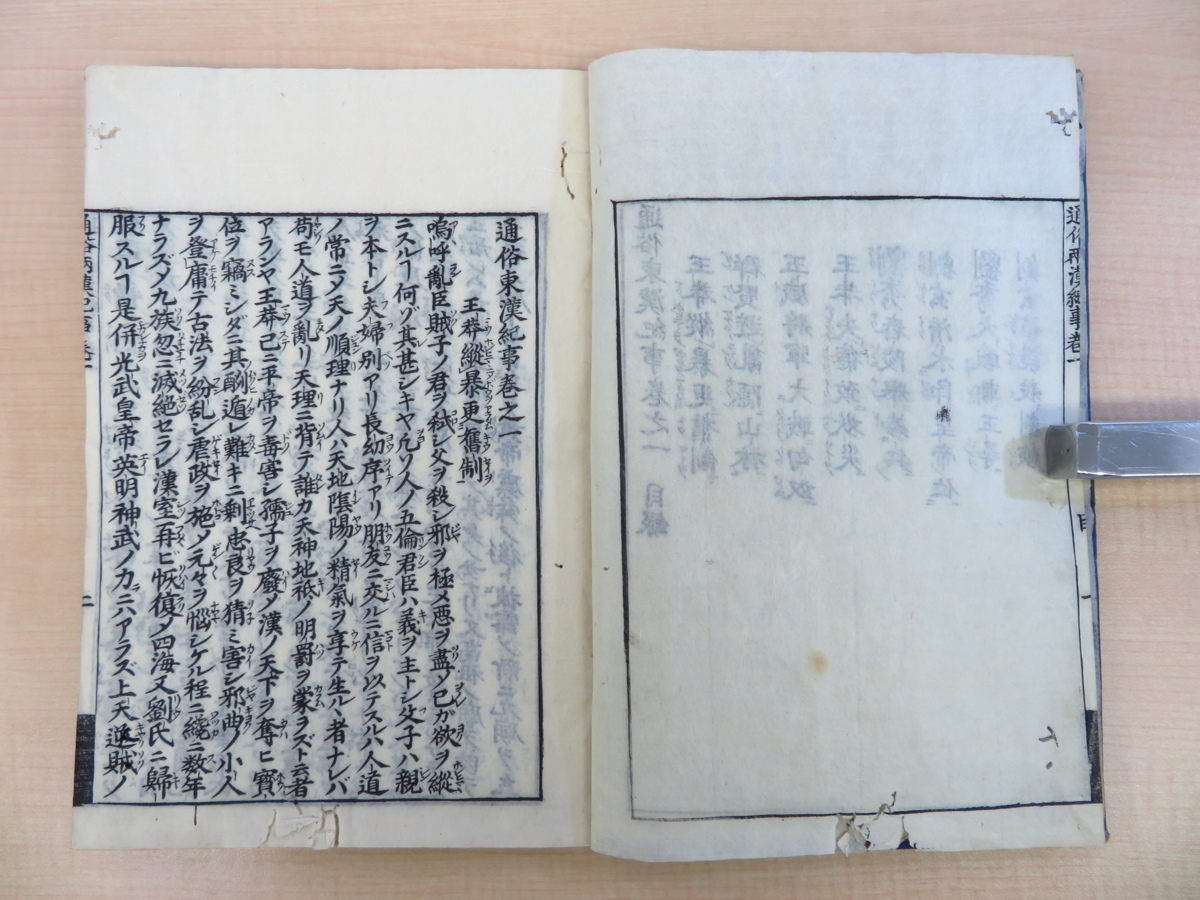 通俗兩漢紀事卷一
目
一
通俗東漢紀事卷之一
王莽縱暴更舊制
嗚呼亂臣賊子ノ君ヲ弑シ父ヲ殺シ邪ヲ極メ悪ヲ盡ノ己が欲ヲ縱
ニスルヿ何ゾ其甚シキヤ凢ソ人ノ五倫君臣ハ義ヲ主トシ父子ハ親
ヲ本トシ夫婦別アリ長幼序アリ朋友ニ交ルニ信ヲ以テスルハ人道
ノ常ニメ天ノ順理ナリ人ハ天地陰陽ノ精氣ヲ享テ生ルヽ者ナレバ
苟モ人道ヲ亂リ天理ニ背テ誰カ天神地祇ノ明罰ヲ蒙ヲズト云者
アランヤ王莽己ニ平帝ヲ毒害シ孺子ヲ廢メ漢ノ天下ヲ奪ヒ寶
位ヲ竊ミシダニ其酬遁レ難キニ剰忠良ヲ猜ミ害シ邪曲ノ小人
ヲ登庸テ古法ヲ紛乱シ虐政ヲ施メ元々ヲ惱シケル程ニ纔ニ数年
ナラズメ九族忽ニ滅絶セラレ漢室再ビ恢復メ四海又劉氏ニ歸
服スルヿ是併光武皇帝英明神武ノカニハアラズ上天逆賊ノ
通俗兩漢紀事卷一
二